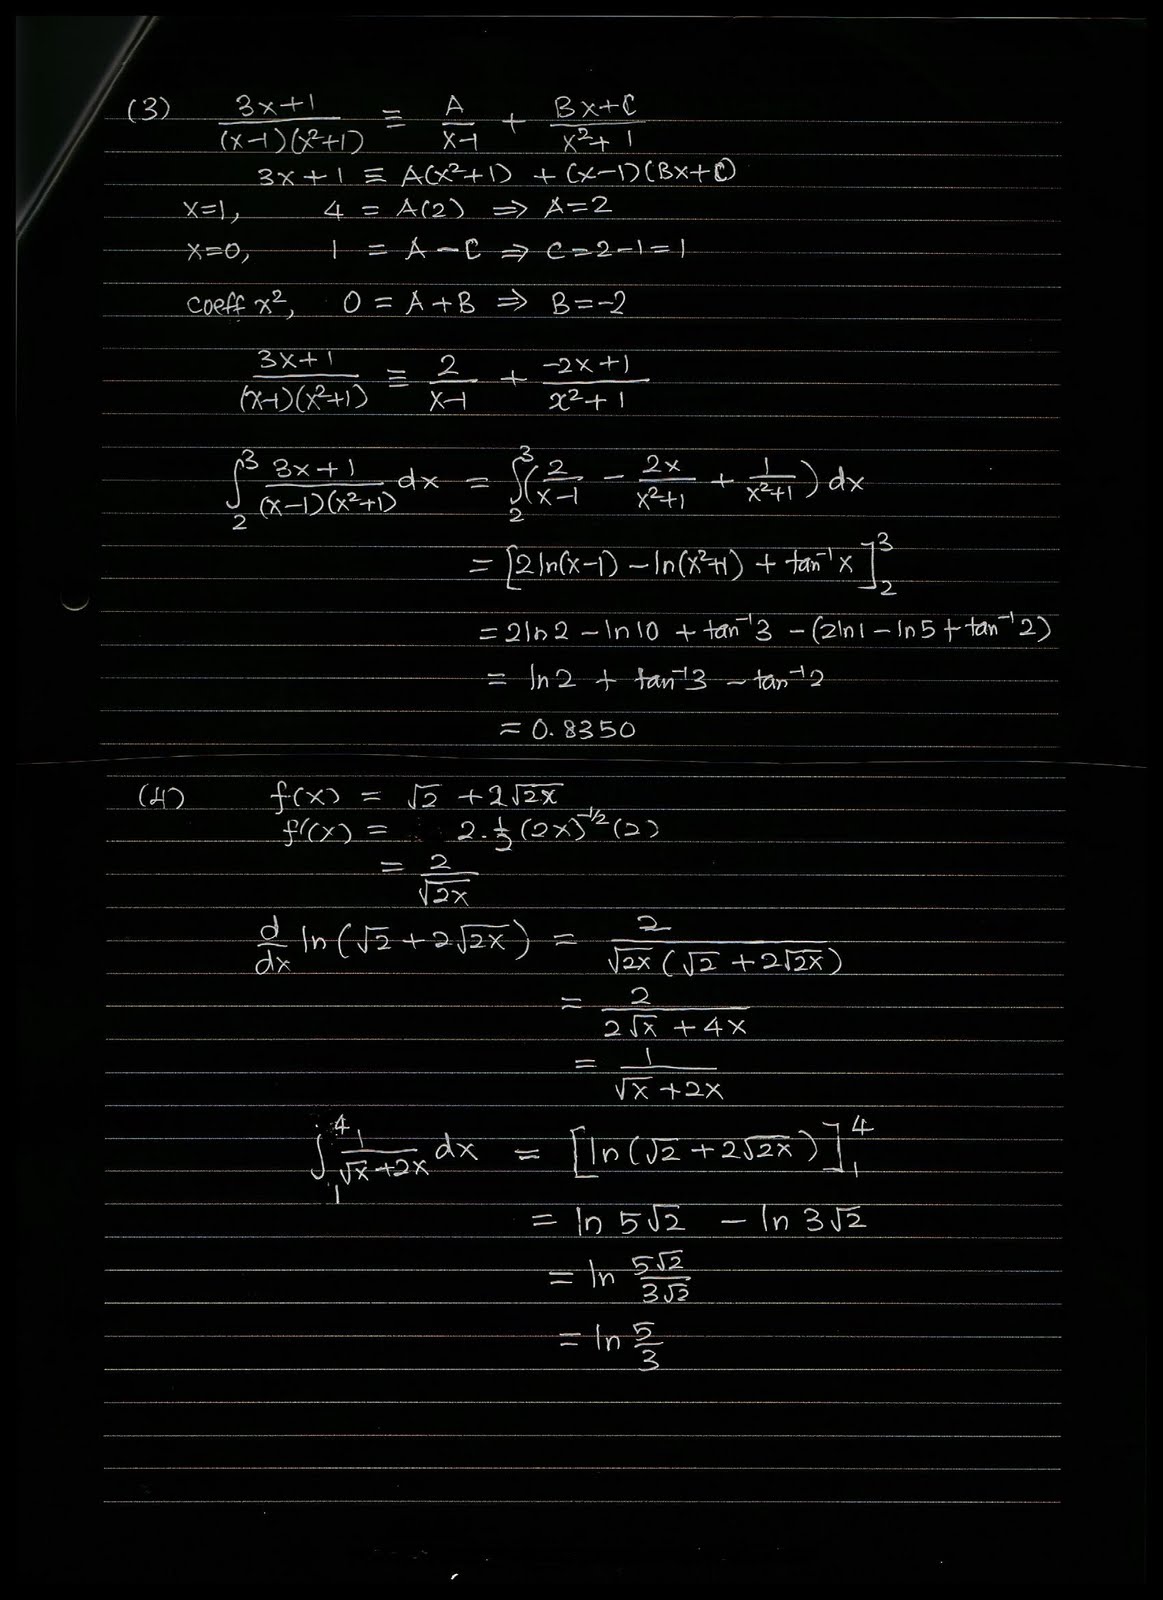 (3) (3x+1)/((x-1)(x²+1)) ≡ A/(x-1) + (Bx+C)/(x²+1)
3x+1 ≡ A(x²+1) + (x-1)(Bx+C)
x=1, 4 = A(2) ⇒ A=2
x=0, 1 = A-C ⇒ C=2-1=1
coeff x², 0 = A+B ⇒ B=-2
(3x+1)/((x-1)(x²+1)) ≡ 2/(x-1) + (-2x+1)/(x²+1)
∫₂³ (3x+1)/((x-1)(x²+1)) dx = ∫₂³ (2/(x-1) - 2x/(x²+1) + 1/(x²+1)) dx
= [2ln(x-1) - ln(x²+1) + tan⁻¹x]₂³
= 2ln2 - ln10 + tan⁻¹3 - (2ln1 - ln5 + tan⁻¹2)
= ln2 + tan⁻¹3 - tan⁻¹2
= 0.8350
(4) f(x) = √2 + 2√(2x)
f'(x) = 2·½(2x)^(-1/2)(2)
= 2/√(2x)
d/dx ln(√2 + 2√(2x)) = 2/(√(2x)(√2 + 2√(2x)))
= 2/(2√x + 4x)
= 1/(√x + 2x)
∫₁⁴ 1/(√x+2x) dx = [ln(√2 + 2√(2x))]₁⁴
= ln 5√2 - ln 3√2
= ln 5√2/3√2
= ln 5/3